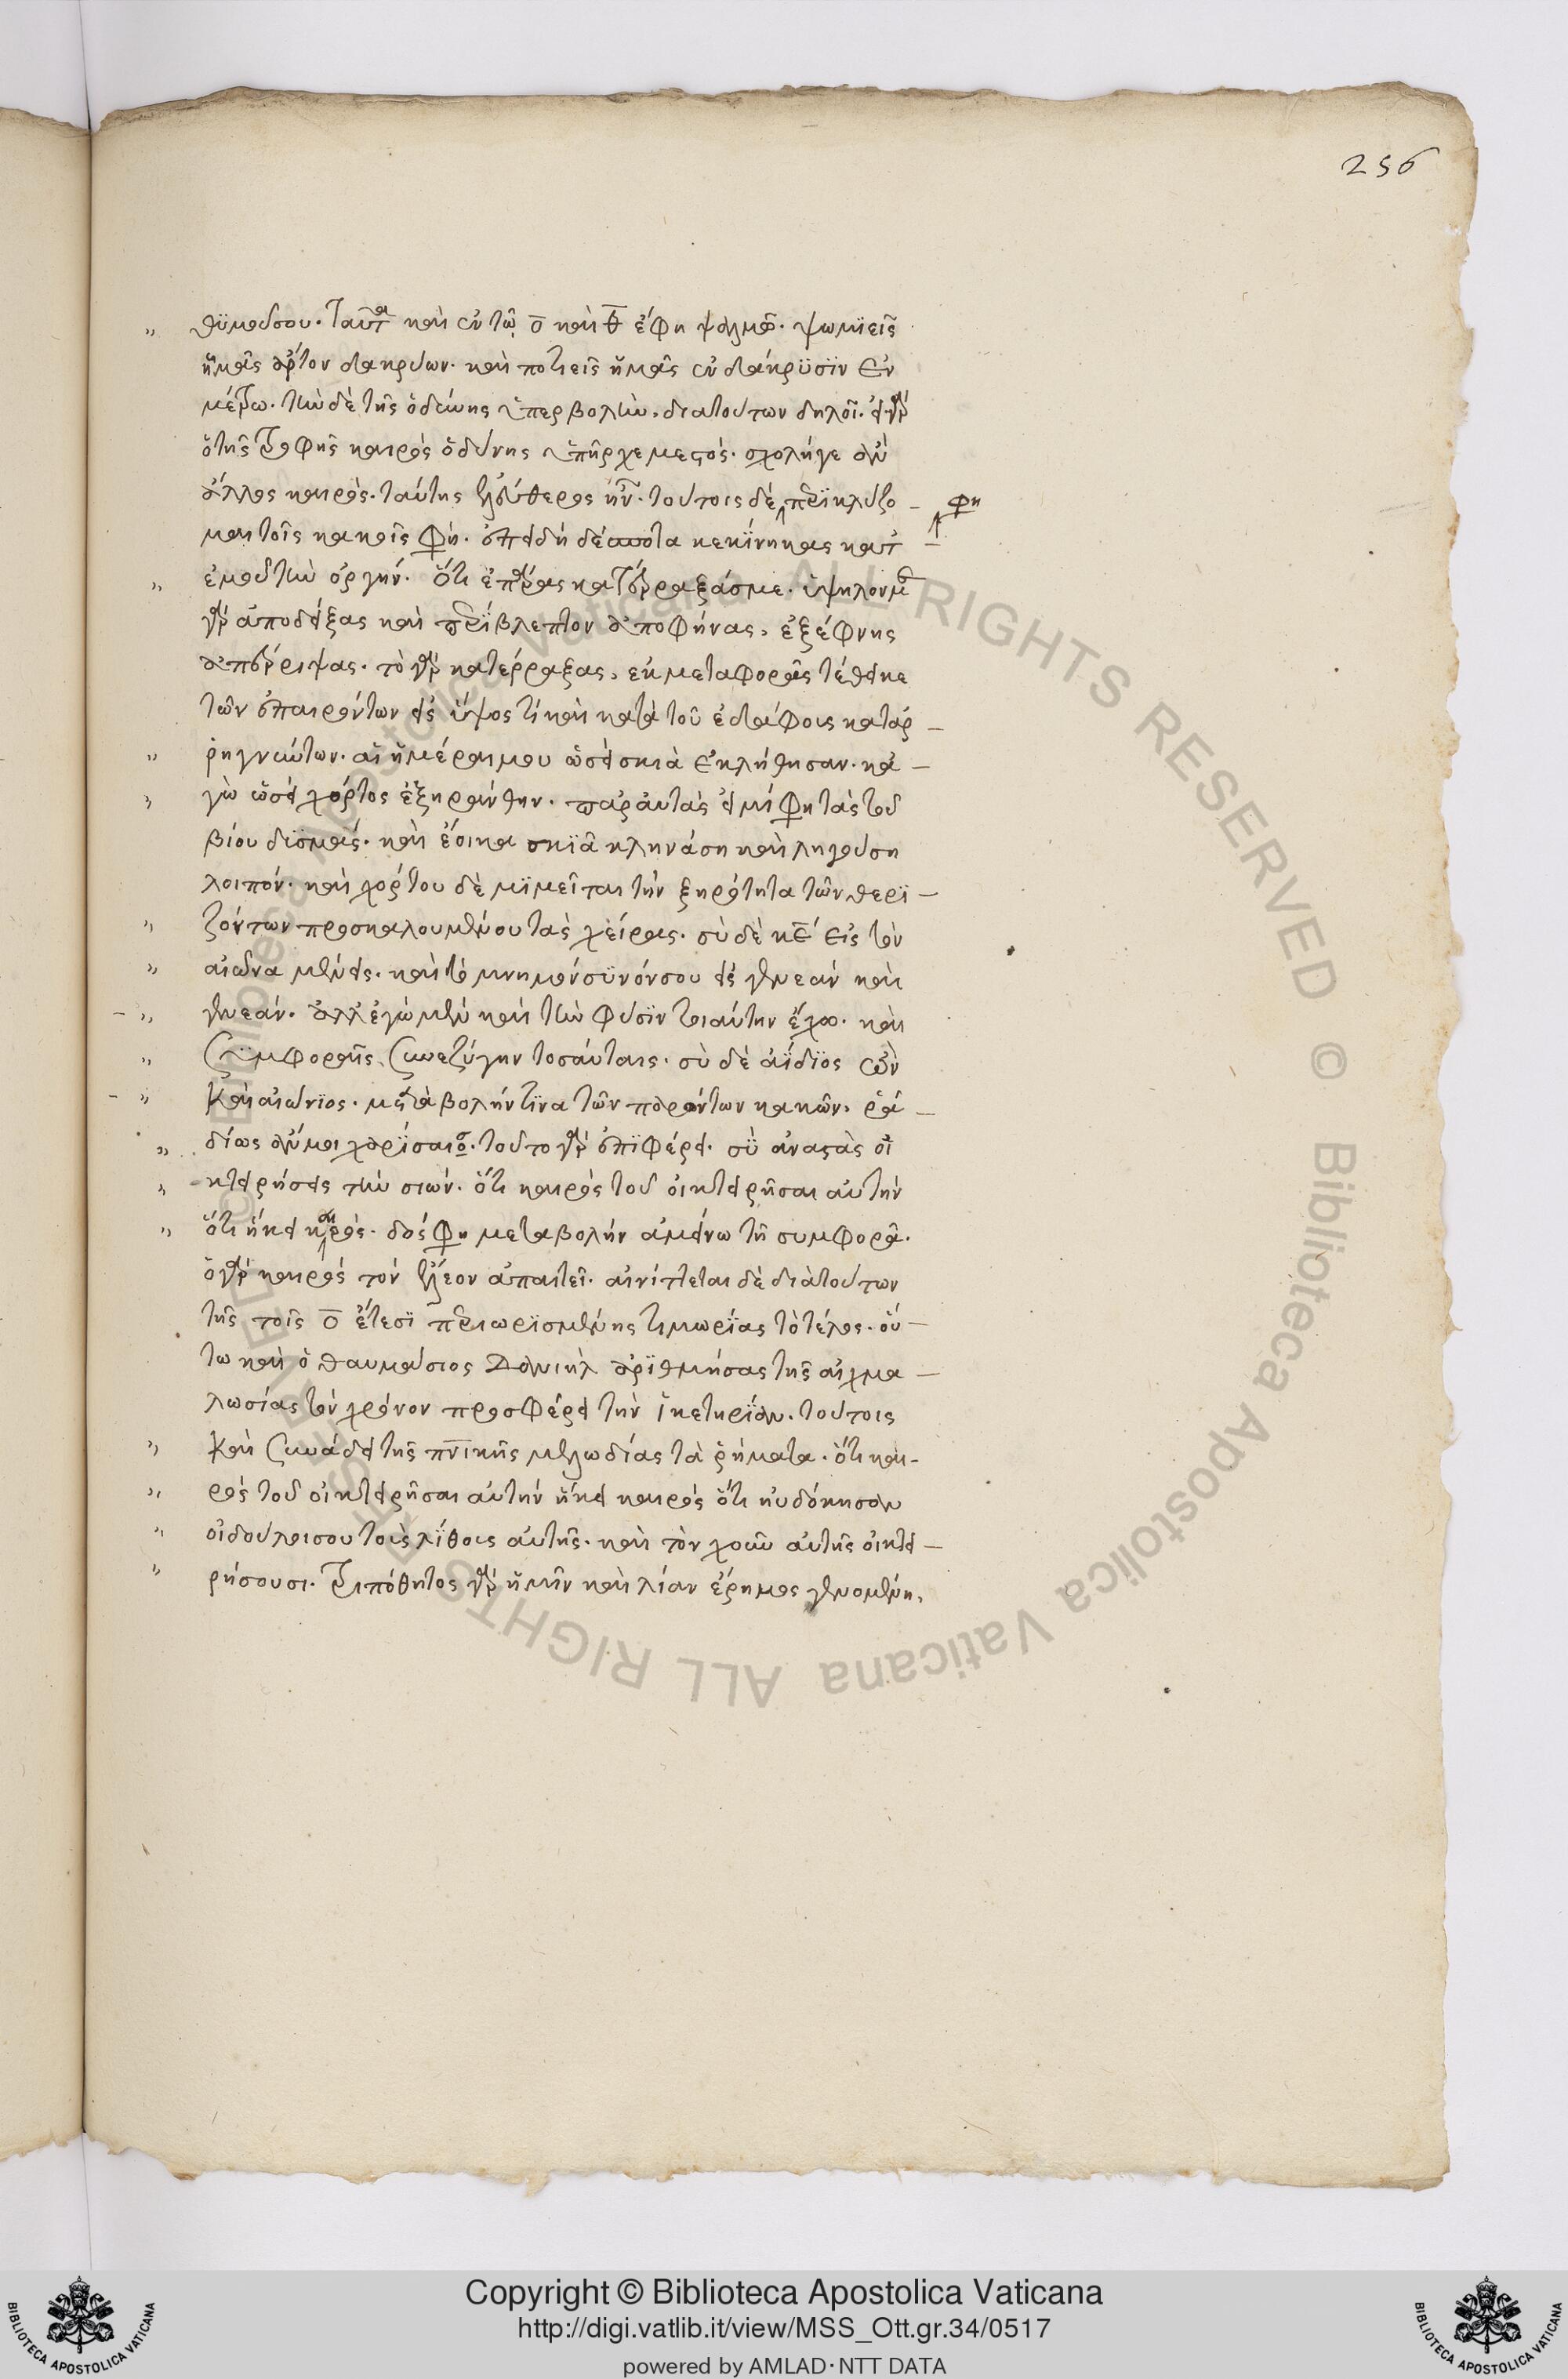 256
θϋμοῦσου. ταῦτα καὶ ἐν τῷ ο̅ καὶ θ̅ ἔφη ψαλμῶ. ψωμϊεῖς
ἡμᾶς ἄρτον δακρύων. καὶ ποτιεῖς ἡμᾶς ἐν δάκρϋσϊν ἐν
μέτρω. τὴν δὲ τῆς ὀδύνης ὑπερβολὴν, διατούτων δηλοῖ. εἰ γὰρ
ὁ τῆς τροφῆς καιρὸς ὀδύνης ὑπῆρχε μεστός. σχολήγε ἂν
ἄλλος καιρὸς. ταύτης ἐλεύθερος ἦν. τούτοις δὲ πεϊκλύζο –
φη
μαι τοῖς κακοῖς φη. ἐπειδὴ δέσποτα κεκίνηκας κατ
ἐμοῦ τὴν ὀργήν. ὅτι ἐπάρας κατέρραξάσμε. ὑψηλὸν μὲν
γὰρ ἀποδείξας καὶ περίβλεπτον ἀποφήνας, ἐξέφνης
ἀπέρριψας. τὸ γὰρ κατέρραξας, ἐκ μεταφορᾶς τέθεικε
τῶν ἐπαιρόντων εἰς ὕψος τί καὶ κατὰ τοῦ ἐδάφους καταρ –
ρηγνύντων. αἱ ἡμέραι μου ὡσεὶ σκιὰ ἐκλήθησαν. κα –
γὼ ὡσεὶ χόρτος ἐξηράνθην. παρ αὐτὰς εἰμί φη τὰς τοῦ
βίου δϋσμάς. καὶ ἔοικα σκϊᾶ κληνάση καὶ ληγούση
λοιπόν. καὶ χόρτου δὲ μϊμεῖται τὴν ξηρότητα τῶν θερϊ –
ζόντων προσκαλουμένου τὰς χεῖρας. σὺ δὲ κ̅ε̅ εἰς τὸν
αἰῶνα μένεις. καὶ τὸ μνημόσϋνόνσου εἰς γενεὰν καὶ
γενεάν. ἀλλ ἐγὼ μὲν καὶ τὴν φύσϊν τοιαύτην ἔχω. καὶ
συμφοραῖς συνεζύγην τοσαύταις. σὺ δὲ ἀΐδϊος ὢν
καὶ αἰώνϊος. μεταβολήν τϊνα τῶν παρόντων κακῶν. ῥα –
δίως ἄν μοι χαρϊσαιο. τοῦτο γὰρ ἐπϊφέρει. σὺ ἀναστὰς οἰ
κτειρήσεις τὴν σιών. ὅτι καιρὸς τοῦ οἰκτειρῆσαι αὐτήν
ὅτι ἥκει καιρός. δός φη μεταβολὴν ἀμείνω τῇ συμφορᾶ.
ὁ γὰρ καιρός τὸν ἔλεον ἀπαιτεῖ. αἰνίττεται δὲ διὰ τούτων
τῆς τοῖς ο̅ ἔτεσϊ περιωρϊσμένης τιμωρίας τὸ τέλος. οὕ –
τω καὶ ὁ θαυμάσιος Δανιὴλ ἀρϊθμήσας τῆς αἰχμα –
λωσίας τὸν χρόνον προσφέρει τὴν ἱκετηρίαν. τούτοις
καὶ συνάδει τῆς π̅ν̅ικῆς μελωδίας τὰ ῥήματα. ὅτι και-
ρὸς τοῦ οἰκτειρῆσαι αὐτήν ἥκει καιρὸς ὅτι ηὐδόκησαν
οἱ δοῦλοισου τοὺς λίθους αὐτῆς. καὶ τὸν χοῦν αὐτῆς οἰκτει –
ρήσουσι. τριπόθητος γὰρ ἡμῖν καὶ λίαν ἔρημος γενομένη,
© Biblioteca Apostolica Vaticana ALL RIGHTS RESERVED © Biblioteca Apostolica Vaticana ALL RIGHTS RESERVED
Copyright © Biblioteca Apostolica Vaticana
http://digi.vatlib.it/view/MSS_Ott.gr.34/0517
powered by AMLAD·NTT DATA
BIBLIOTECA APOSTOLICA VATICANA
BIBLIOTECA APOSTOLICA VATICANA